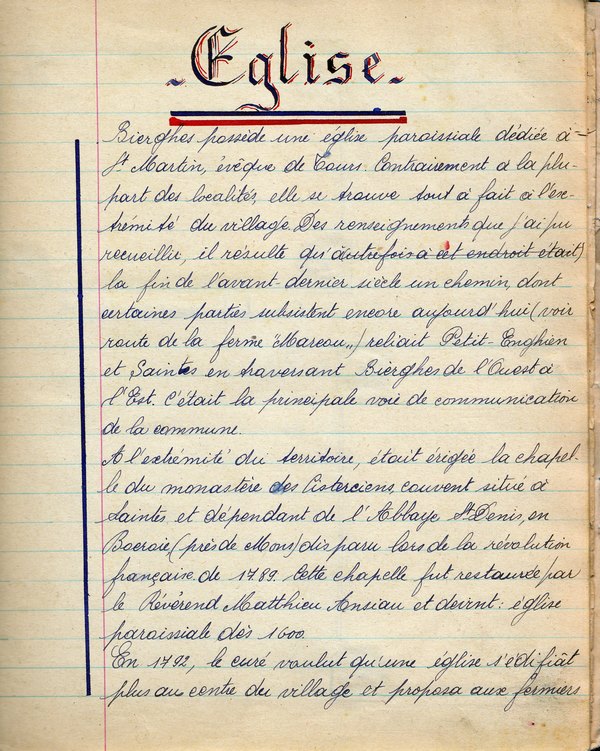 - Eglise -
Bierghes possède une église paroissiale dédiée à
St Martin, évêque de Tours. Contrairement à la plu-
part des localités, elle se trouve tout à fait à l'ex-
trémité du village. Des renseignements que j'ai pu
recueillir, il résulte qu'autrefois à cet endroit était)
la fin de l'avant-dernier siècle un chemin, dont
certaines parties subsistent encore aujourd'hui (voir
route de la ferme "Marcou,,) reliait Petit-Enghien
et Saintes en traversant Bierghes de l'Ouest à
l'Est. C'était la principale voie de communication
de la commune.
A l'extrémité du territoire, était érigée la chapel-
le du monastère des Cisterciens, couvent situé à
Saintes et dépendant de l'Abbaye St Denis, en
Bocroie (près de Mons) disparu lors de la révolution
française de 1789. Cette chapelle fut restaurée par
le Révérend Matthieu Ansiau et devint : église
paroissiale dès 1600.
En 1792, le curé voulut qu'une église s'édifiât
plus au centre du village et proposa aux fermiers